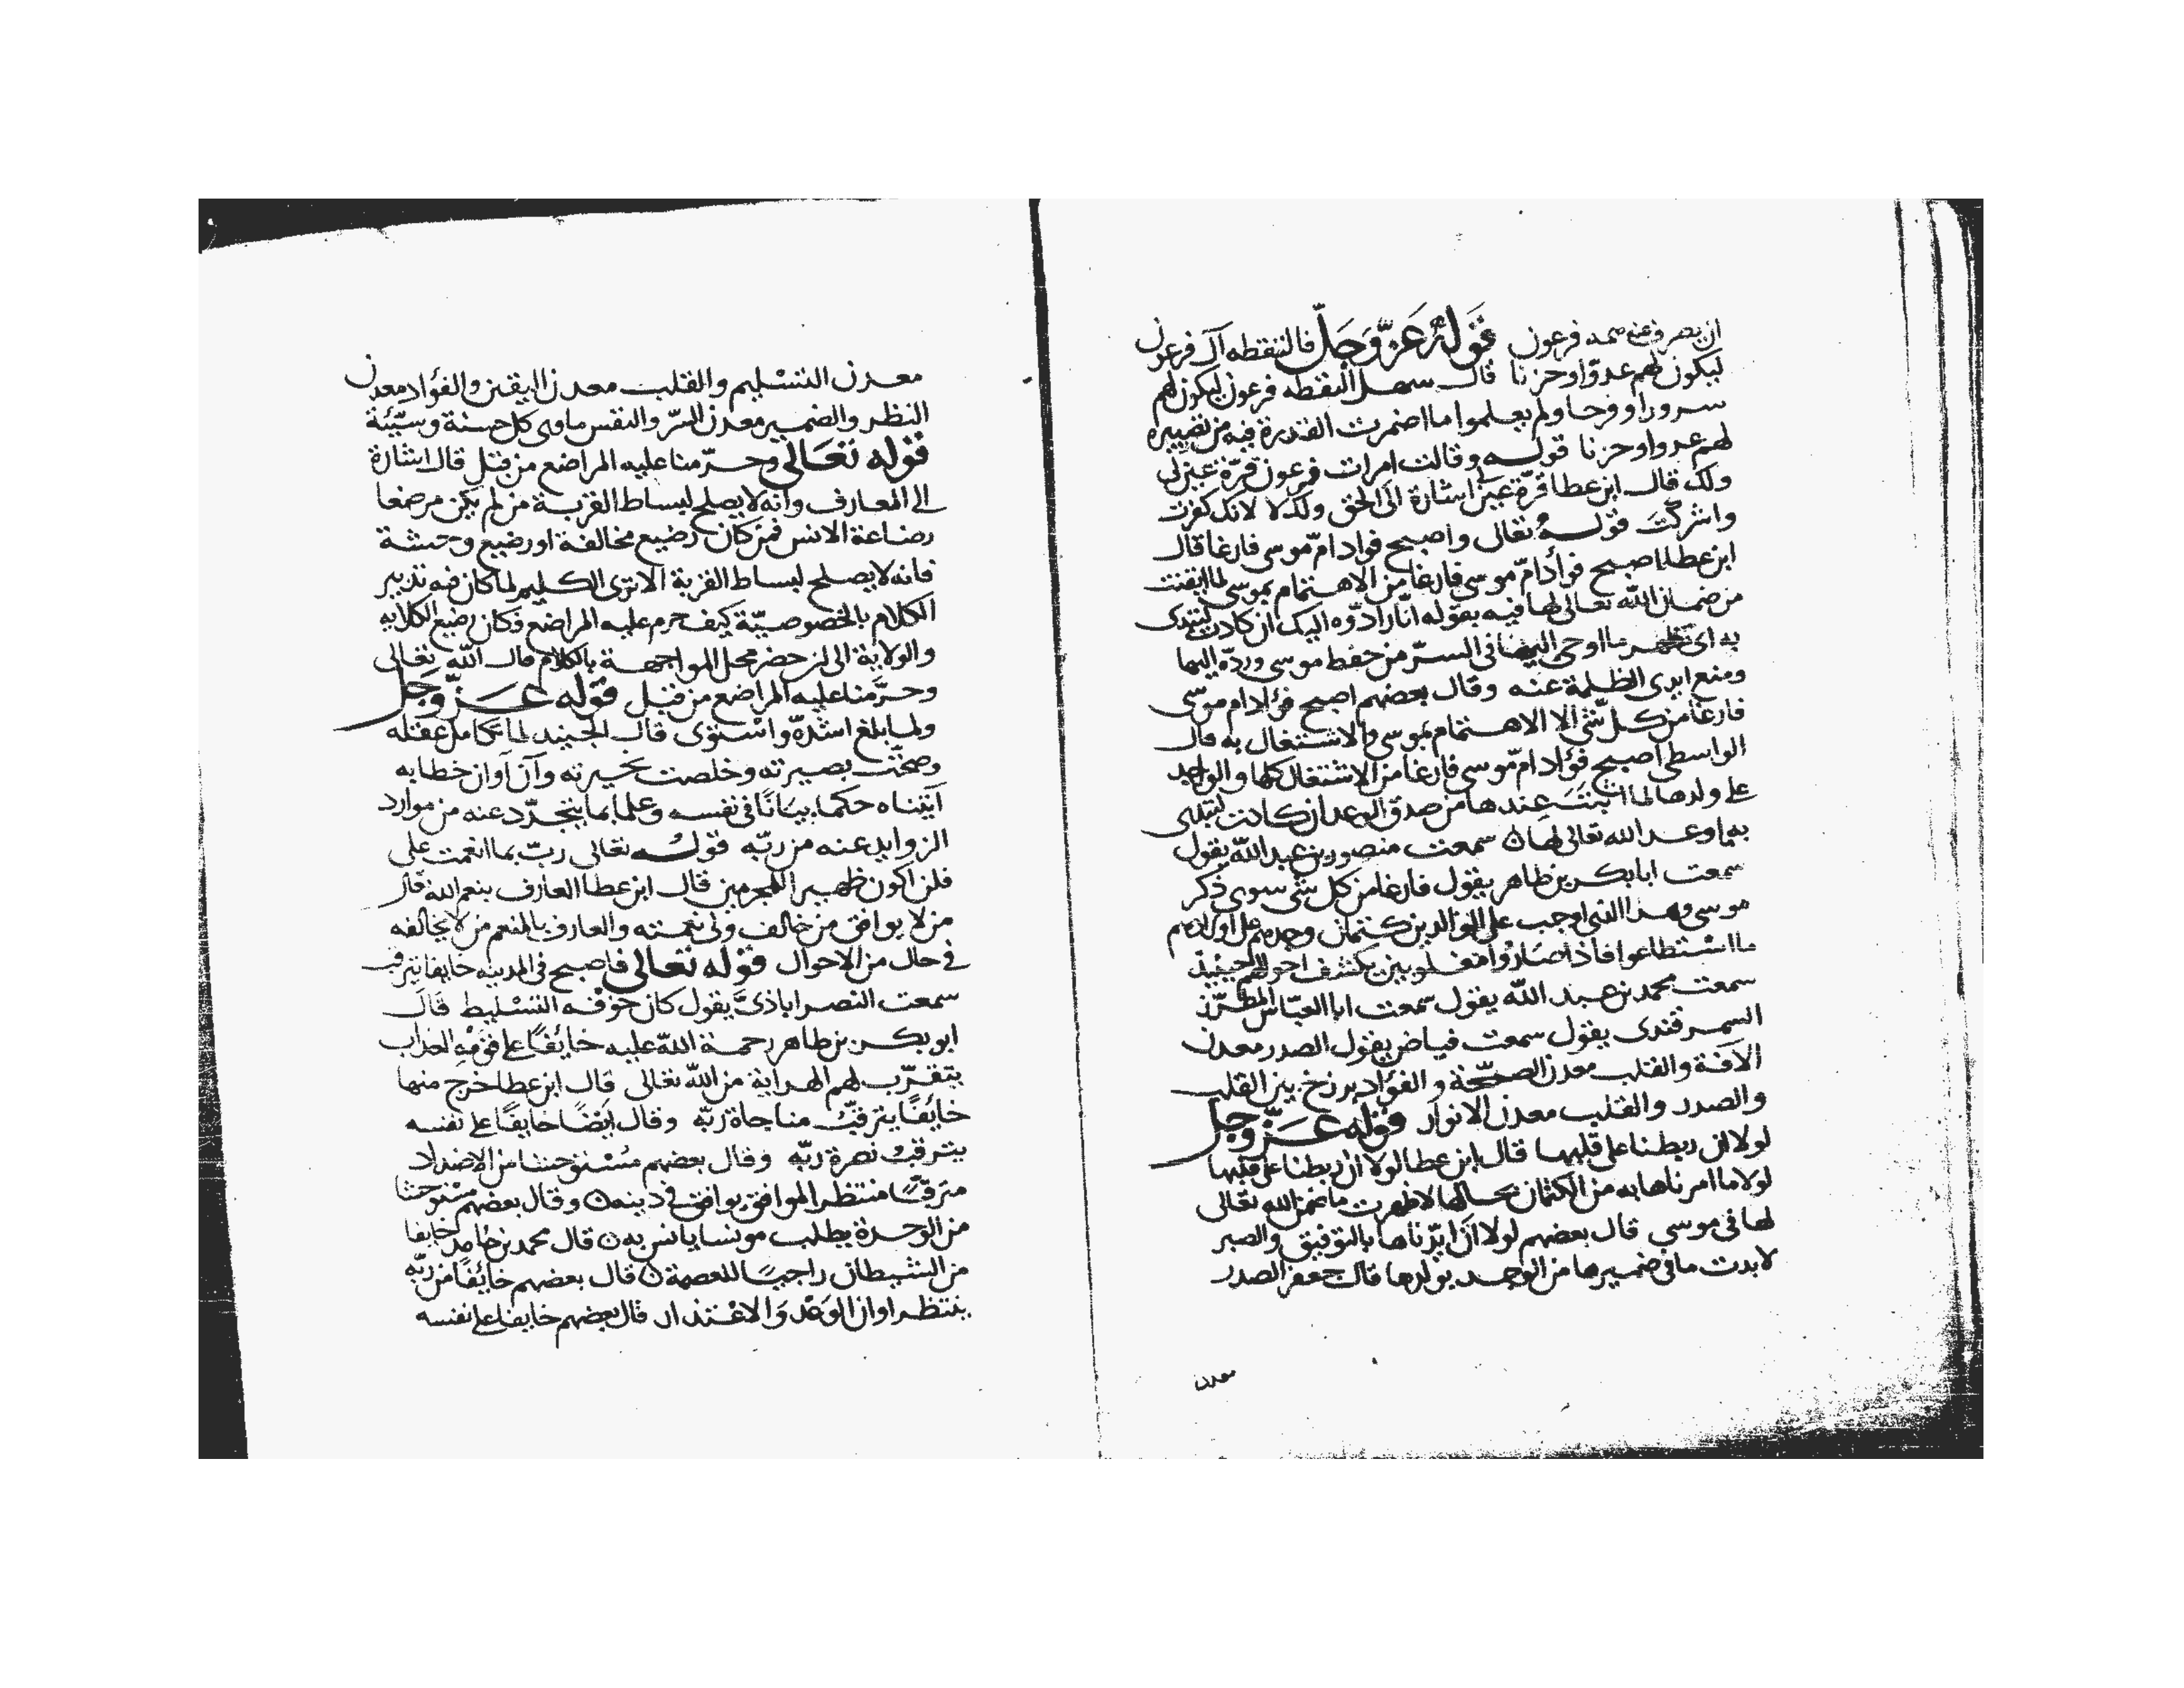 ان يصرف عنه صمه فرعون قوله عز وجل فالتقطه آل فرعون
ليكون لهم عدوّا وحزنا قال سهل التقطه فرعون ليكون لهم
سرورا وفرحا ولم يعلموا ما اضمرت القدرة فيه من تصييره
لهم عدوا وحزنا قوله وقالت امرات فرعون قرّة عين لي
ولك قال ابن عطا قرّة عين لي اشارة الى الحق ولك لا لانك كفرت
واشركت قوله تعالى واصبح فواد امّ موسى فارغا قال
ابن عطا اصبح فؤاد امّ موسى فارغا من الاهتمام بموسى لما ايقنت
من ضمان الله تعالى لها فيه بقوله انّا رادّوه اليك ان كادت لتبدى
به اى تظهر ما اوحى اليها في السرّ من حفظ موسى وردّه اليها
ومنع ايدى الظلمة عنه وقال بعضهم اصبح فؤاد ام موسى
فارغا من كل شى الا الاهتمام بموسى والاشتغال به قال
الواسطى اصبح فؤاد امّ موسى فارغا من الاشتغال كلها والواجد
على ولدها لما اثبتت عندها من صدق الوعد ان كادت لتبدى
بما وعد الله تعالى لها ن سمعت منصور بن عبد الله يقول
سمعت ابا بكر بن طاهر يقول فارغا من كل شى سوى ذكر
موسى وهذا الذى اوجب على الوالدين كتمان وجدهم على اولادهم
ما استطاعوا فاذا صاروا مغلوبين يكشف احوالهم حينيذ
سمعت محمد بن عبد الله يقول سمعت ابا العبّاس المطرّز
السمرقندى يقول سمعت فياض يقول الصدر معدن
الآفة والقلب معدن الصحّة و الفؤاد برزخ بين القلب
والصدر والقلب معدن الانوار قوله عزّ وجل
لولا ان ربطنا على قلبها قال ابن عطا لولا ان ربطنا على قلبها
لولا ما امرناها به من الكتمان بحالها لاظهرت ما ضمن الله تعالى
لها في موسى قال بعضهم لولا ان ايّدناها بالتوفيق والصبر
لابدت ما في ضميرها من الوجد بولدها قال جعفر الصدر
معدن
معدن التسليم والقلب معدن اليقين والفؤاد معدن
النظر والضمير معدن السرّ والنفس ماوى كل حسنة وسيّئة
قوله تعالى وحرّمنا عليه المراضع من قبل قال اشارة
الى المعارف وانه لا يصلح لبساط القربة من لم يكن مرضعا
رضاعة الانس فمن كان رضيع مخالفة او رضيع وحشة
فانه لا يصلح لبساط القربة الا ترى الكليم لما كان فيه تدبير
الكلام بالخصوصيّة كيف حرم عليه المراضع وكان رضيع الكلايه
والولاية الى ان حضر محل المواجهة بالكلام قال الله تعالى
وحرّمنا عليه المراضع من قبل قوله عزّ وجل
ولما بلغ اشدّه واستوى قال الجنيد لما تكامل عقله
وصحّت بصيرته وخلصت نحيرته وآن اوان خطابه
آتيناه حكما بيانًا في نفسه وعلما بما يتجدّد عنه من موارد
الزوايد عنه من ربّه قوله تعالى ربّ بما انعمت علي
فلن اكون ظهيرا للمجرمين قال ابن عطا العارف بنعم الله قال
من لا يوافق من خالف ولى نعمته والعارف بالمنعم من لا يخالفه
في حال من الاحوال قوله تعالى فاصبح في المدينه خايفا يترقب
سمعت النصراباذى يقول كان خوفه التسليط قال
ابو بكر بن طاهر رحمة الله عليه خايفًا على قومه العذاب
يتقرّب لهم الهداية من الله تعالى قال ابن عطا خرج منها
خائفًا يترقّب مناجاة ربّه وقال ايضًا خايفًا على نفسه
يترقب نصرة ربّه وقال بعضهم مستوحشا من الاضداد
مترقبًا منتظر الموافق يوافق في دينه ن وقال بعضهم مستوحشا
من الوحدة يطلب مونسا يانس به ن قال محمد بن حامد خايفا
من الشيطان راجيًا للعصمة ن قال بعضهم خايفًا من ربّه
ينتظر اوان الوعد والاعتذار قال بعضهم خايفا على نفسه